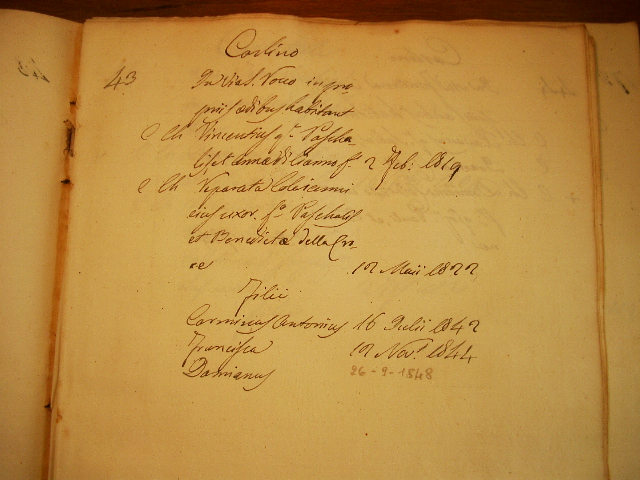 Corlino
43 In via S. Voco in pro
priis ædibus habitant
C Ch Vincentius q.m Pascha
lis et annæ di Ianno f. 2 Feb: 1819
C Ch Reparata Colavanni
eius uxor. f.a Paschalis
et Benedictæ della Cro
ce 12 Maii 1822
Filii
Carminus Antonius 16 Julii 1842
Francisca 12 Nov. 1844
Damianus 26-9-1848